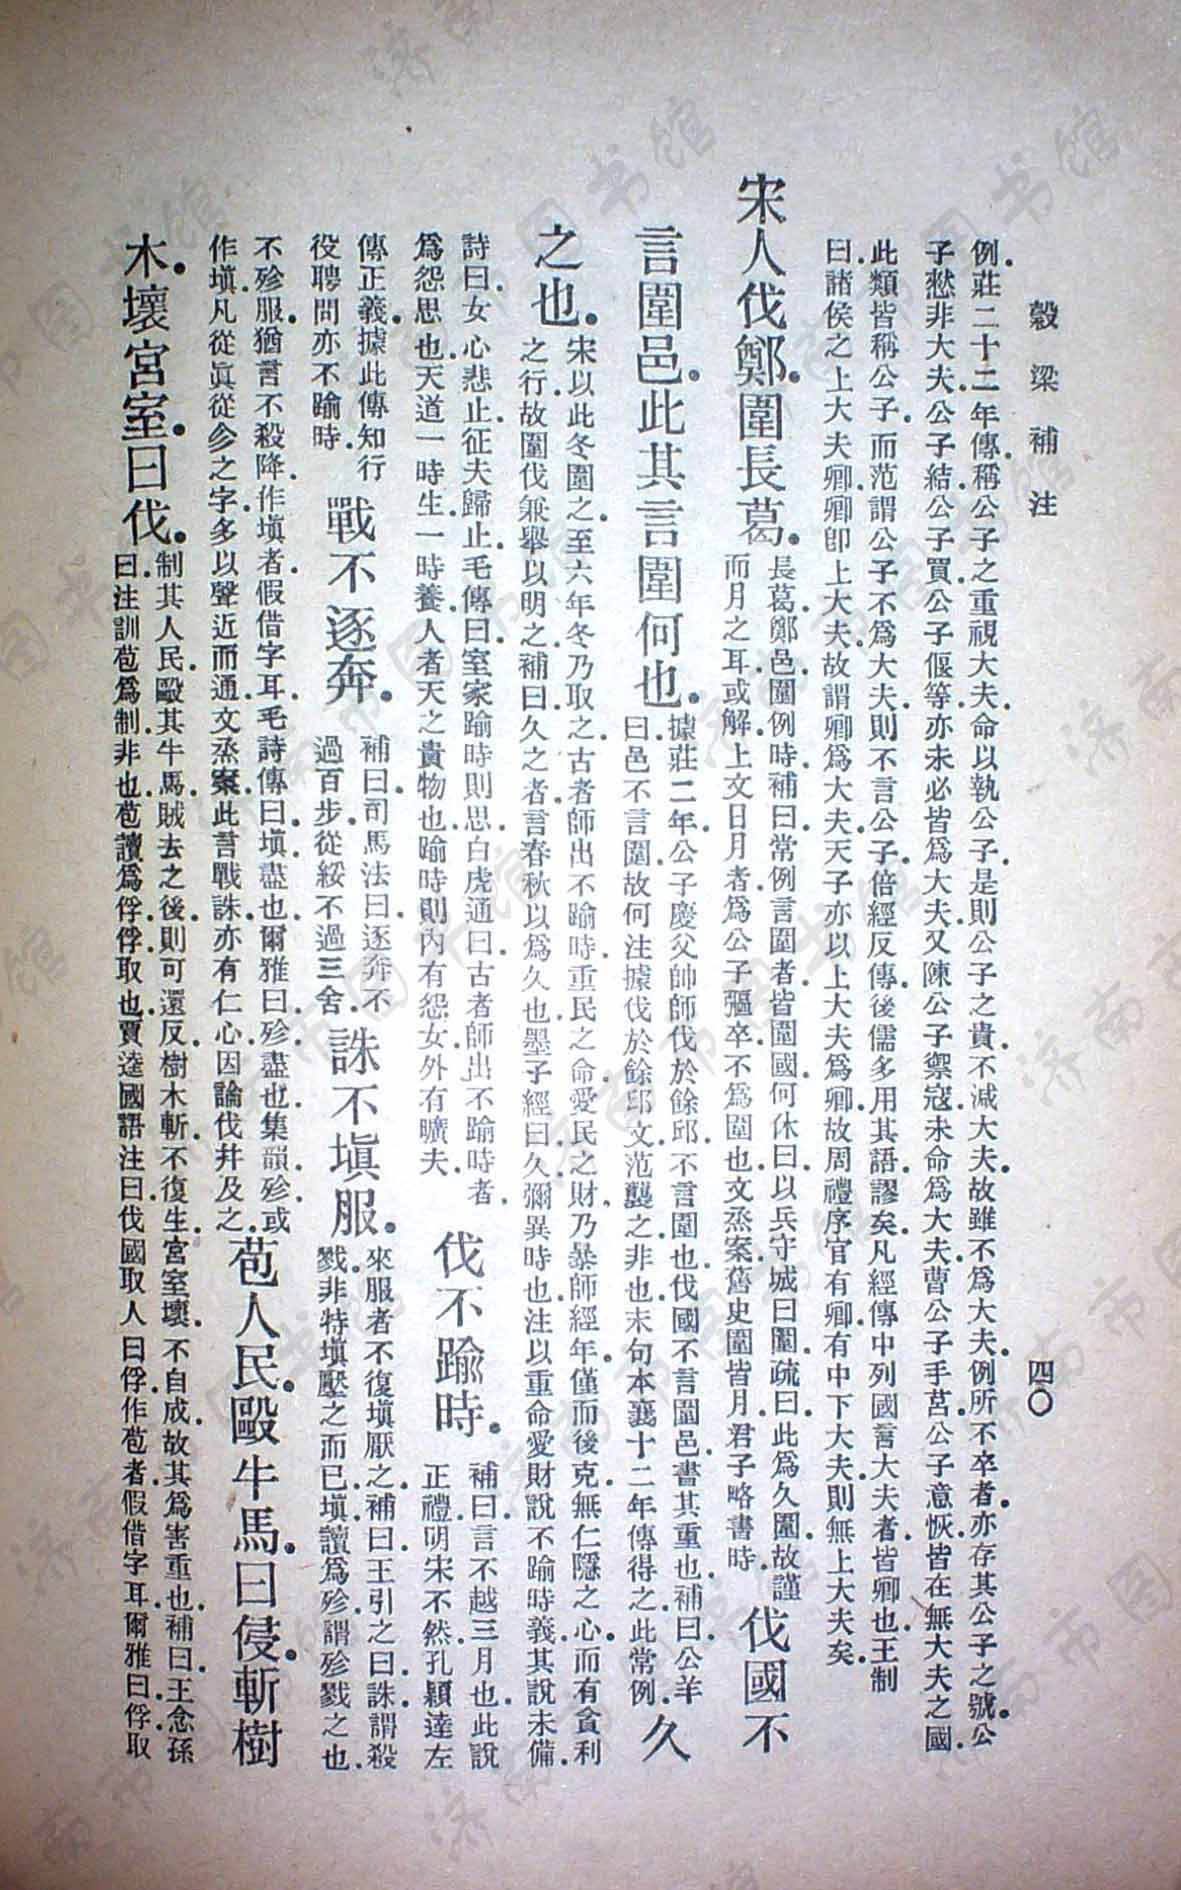 穀梁補注
四〇
例莊二十二年傳稱公子之重視大夫命以執公子是則公子之貴不減大夫故雖不爲大夫例所不卒者亦存其公子之號公
子憖非大夫公子結公子買公子偃等亦未必皆爲大夫又陳公子禦寇未命爲大夫曹公子手莒公子意恢皆在無大夫之國
此類皆稱公子而范謂公子不爲大夫則不言公子倍經反傳後儒多用其語謬矣凡經傳中列國言大夫者皆卿也王制
曰諸侯之上大夫卿卿卽上大夫故謂卿爲大夫天子亦以上大夫爲卿故周禮序官有卿有中下大夫則無上大夫矣
宋人伐鄭圍長葛
長葛鄭邑圍例時補曰常例言圍者皆圍國何休曰以兵守城曰圍疏曰此爲久圍故謹
而月之耳或解上文日月者爲公子彄卒不爲圍也文烝案舊史圍皆月君子略書時
伐國不
言圍邑此其言圍何也
據莊二年公子慶父帥師伐於餘邱不言圍也伐國不言圍邑書其重也補曰公羊
曰邑不言圍故何注據伐於餘邱文范襲之非也末句本襄十二年傳得之此常例
久
之也
宋以此冬圍之至六年冬乃取之古者師出不踰時重民之命愛民之財乃暴師經年僅而後克無仁隱之心而有貪利
之行故圍伐兼舉以明之補曰久之者言春秋以爲久也墨子經曰久彌異時也注以重命愛財說不踰時義其說未備
詩曰女心悲止征夫歸止毛傳曰室家踰時則思白虎通曰古者師出不踰時者
爲怨思也天道一時生一時養人者天之貴物也踰時則內有怨女外有曠夫
伐不踰時
補曰言不越三月也此說
正禮明宋不然孔穎達左
傳正義據此傳知行
役聘問亦不踰時
戰不逐奔
補曰司馬法曰逐奔不
過百步從綏不過三舍
誅不塡服
來服者不復塡厭之補曰王引之曰誅謂殺
戮非特塡壓之而已塡讀爲殄謂殄戮之也
不殄服猶言不殺降作塡者假借字耳毛詩傳曰塡盡也爾雅曰殄盡也集韻殄或
作塡凡從眞從㐱之字多以聲近而通文烝案此言戰誅亦有仁心因論伐幷及之
苞人民毆牛馬曰侵斬樹
木壞宮室曰伐
制其人民毆其牛馬賊去之後則可還反樹木斬不復生宮室壞不自成故其爲害重也補曰王念孫
曰注訓苞爲制非也苞讀爲俘俘取也賈逵國語注曰伐國取人曰俘作苞者假借字耳爾雅曰俘取